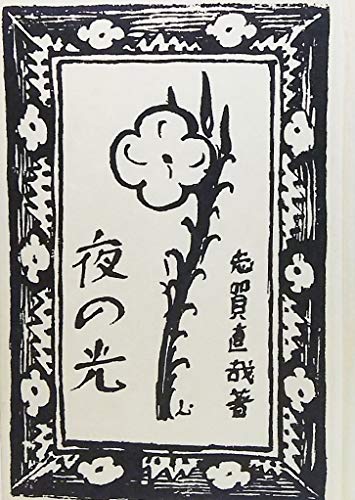 志賀直哉著
夜の光